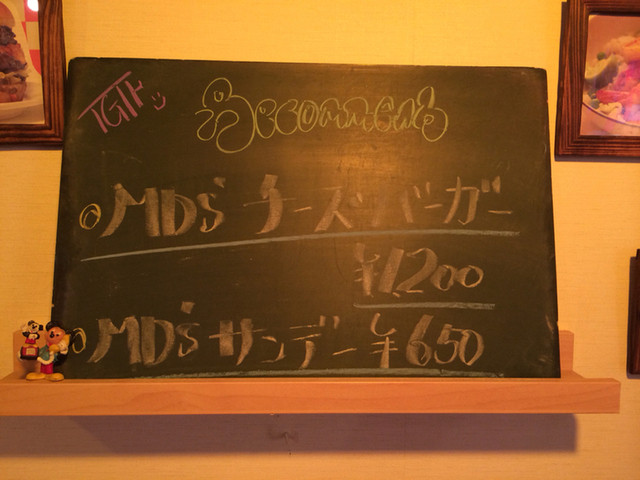 TGIF
Recommend
MD's チーズバーガー
¥1,200
MD's サンデー ¥650